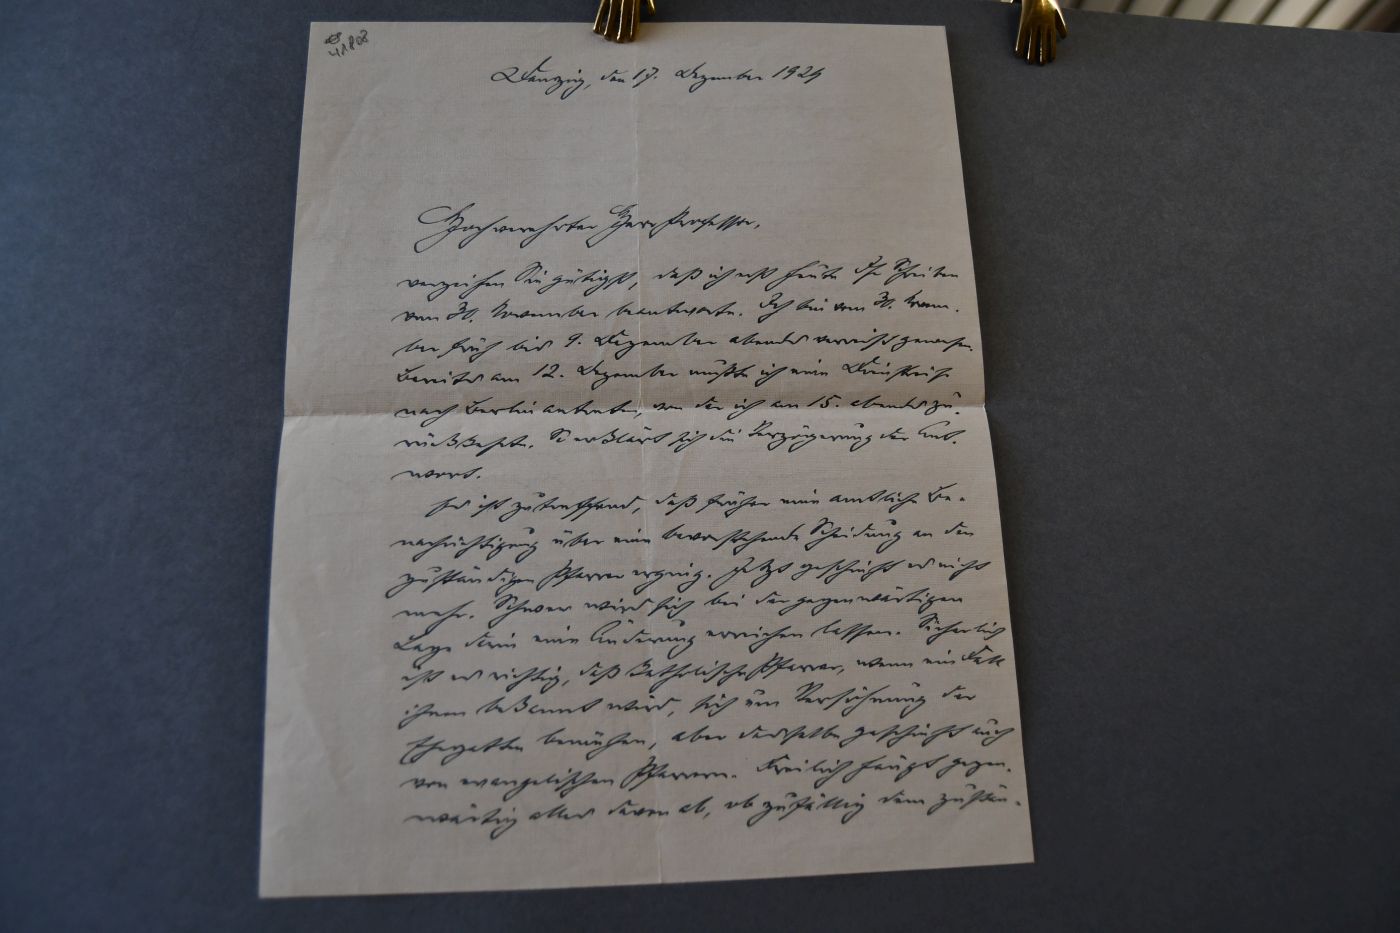 41808
Danzig, den 17. Dezember 1924
Hochverehrter Herr Professor,
verzeihen Sie gütigst, daß ich erst heute Ihr Schreiben
vom 30. November beantworte. Ich bin vom 30. Novem-
ber früh bis 9. Dezember abends verreist gewesen.
Bereits am 12. Dezember mußte ich eine Dienstreise
nach Berlin antreten, von der ich am 15. abends zu-
rückkehrte. So erklärt sich die Verzögerung der Ant-
wort.
Es ist zutreffend, daß früher eine amtliche Be-
nachrichtigung über eine bevorstehende Scheidung an den
zuständigen Pfarrer erging. Jetzt geschieht es nicht
mehr. Schwer wird sich bei der gegenwärtigen
Lage darin eine Änderung erreichen lassen. Sicherlich
ist es richtig, daß katholische Pfarrer, wenn ein Fall
ihnen bekannt wird, sich um Versöhnung der
Ehegatten bemühen, aber dasselbe geschieht auch
von evangelischen Pfarrern. Freilich hängt gegen-
wärtig alles davon ab, ob zufällig dem zustän-